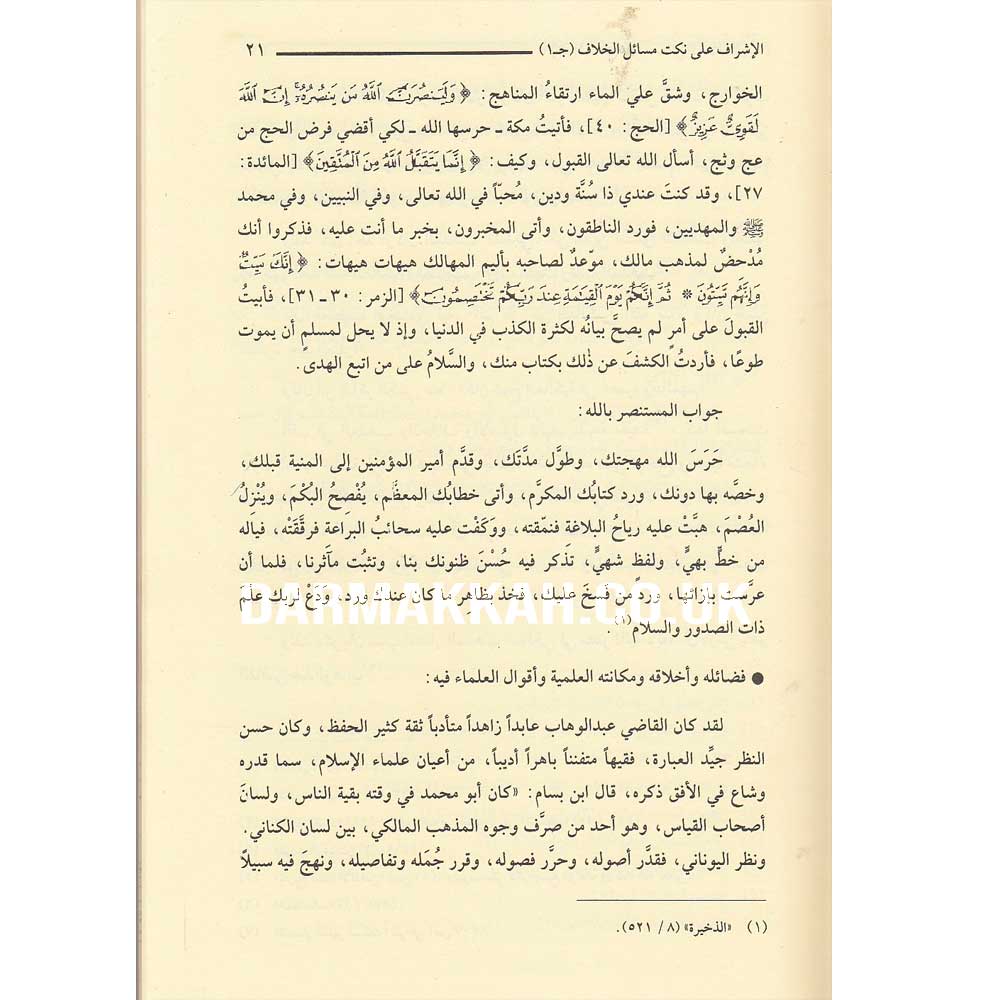 الإشراف على نكت مسائل الخلاف (جـ١) ٢١
الخوارج، وشقَّ علي الماء ارتقاءُ المناهج: ﴿وَلَيَنصُرَنَّ ٱللَّهُ مَن يَنصُرُهُۥٓ إِنَّ ٱللَّهَ
لَقَوِيٌّ عَزِيزٌ﴾ [الحج: ٤٠]، فأتيتُ مكة ـ حرسها الله ـ لكي أقضي فرض الحج من
عج وثج، أسأل الله تعالى القبول، وكيف: ﴿إِنَّمَا يَتَقَبَّلُ ٱللَّهُ مِنَ ٱلْمُتَّقِينَ﴾ [المائدة:
٢٧]، وقد كنتَ عندي ذا سُنَّة ودين، مُحبّاً في الله تعالى، وفي النبيين، وفي محمد
ﷺ والمهديين، فورد الناطقون، وأتى المخبرون، بخبر ما أنت عليه، فذكروا أنك
مُدْحضٌ لمذهب مالك، موّعدٌ لصاحبه بأليم المهالك هيهات هيهات: ﴿إِنَّكَ مَيِّتٌ
وَإِنَّهُم مَّيِّتُونَ * ثُمَّ إِنَّكُمْ يَوْمَ ٱلْقِيَٰمَةِ عِندَ رَبِّكُمْ تَخْتَصِمُونَ﴾ [الزمر: ٣٠ ـ ٣١]، فأبيتُ
القبولَ على أمرٍ لم يصحَّ بيانُه لكثرة الكذب في الدنيا، وإذ لا يحل لمسلمٍ أن يموت
طوعًا، فأردتُ الكشفَ عن ذٰلك بكتاب منك، والسَّلامُ على من اتبع الهدى.
جواب المستنصر بالله:
حَرَسَ الله مهجتك، وطوَّل مدَّتَك، وقدَّم أمير المؤمنين إلى المنية قبلك،
وخصَّه بها دونك، ورد كتابُك المكرَّم، وأتى خطابُك المعظَّم، يُفْصِحُ البُكْمَ، ويُنْزِلُ
العُصْمَ، هبَّتْ عليه رياحُ البلاغة فنمّقته، ووَكَفْت عليه سحائبُ البراعة فرقَّقَتْه، فياله
من خطٍّ بهيٍّ، ولفظ شهيٍّ، تَذكر فيه حُسْنَ ظنونك بنا، وتثبُت مآثرنا، فلما أن
عرَّست بإزائها، وردَ من فَسَخَ عليك، فخذ بظاهِرِ ما كان عندك ورد، ودَعْ لربك علمَ
DARMAKKAH.CO.UK
ذات الصدور والسلام(١).
● فضائله وأخلاقه ومكانته العلمية وأقوال العلماء فيه:
لقد كان القاضي عبدالوهاب عابداً زاهداً متأدباً ثقة كثير الحفظ، وكان حسن
النظر جيِّد العبارة، فقيهاً متفنناً باهراً أديباً، من أعيان علماء الإسلام، سما قدره
وشاع في الأفق ذكره، قال ابن بسام: «كان أبو محمد في وقته بقية الناس، ولسانَ
أصحاب القياس، وهو أحد من صرَّف وجوه المذهب المالكي، بين لسان الكناني.
ونظر اليوناني، فقدَّر أصوله، وحرَّر فصوله، وقرر جُمَله وتفاصيله، ونهجَ فيه سبيلاً
(١) «الذخيرة» (٨/ ٥٢١).